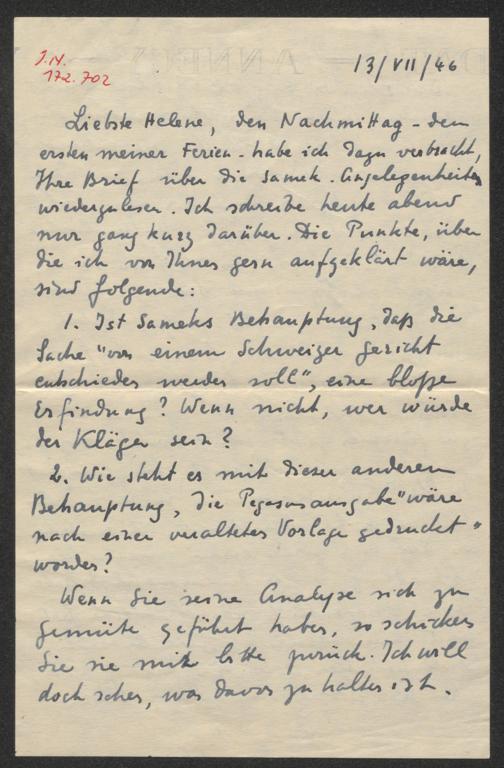 J.N.
172.702
13/VII/46
Liebste Helene, den Nachmittag - den
ersten meiner Ferien - habe ich dazu verbracht,
Ihre Brief über die Samek-Angelegenheiten
wiederzulesen. Ich schreibe heute abend
nur ganz kurz darüber. Die Punkte, über
die ich von Ihnen gern aufgeklärt wäre,
sind folgende:
1. Ist Sameks Behauptung, daß die
Sache "von einem Schweizer Gericht
entschieden werden soll", eine bloße
Erfindung? Wenn nicht, wer würde
der Kläger sein?
2. Wie steht es mit dieser anderen
Behauptung, die Pegasusausgabe "wäre
nach einer veralteten Vorlage gedruckt"
worden?
Wenn Sie seine Analyse sich zu
Gemüte geführt haben, so schicken
Sie sie mir bitte zurück. Ich will
doch sehen, was davon zu halten ist.